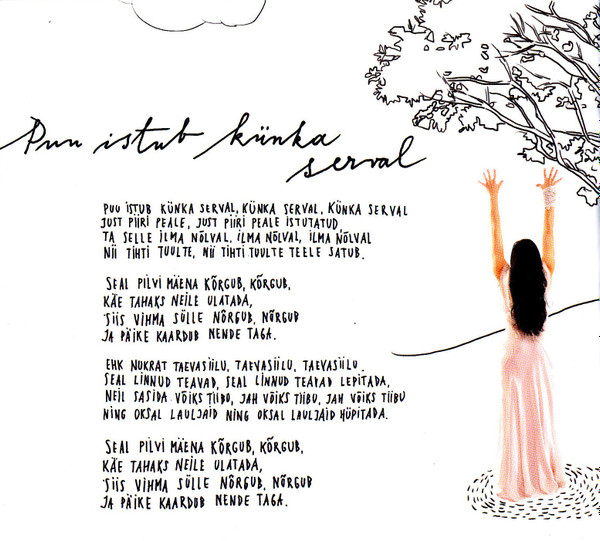 Puu istub künka
serval
PUU ISTUB KÜNKA SERVAL, KÜNKA SERVAL, KÜNKA SERVAL
JUST PIIRI PEALE, JUST PIIRI PEALE ISTUTATUD.
TA SELLE ILMA NÕLVAL, ILMA NÕLVAL, ILMA NÕLVAL
NII TIHTI TUULTE, NII TIHTI TUULTE TEELE SATUB.
SEAL PILVI MÄENA KÕRGUB, KÕRGUB,
KÄE TAHAKS NEILE ULATADA,
SIIS VIHMA SÜLLE NÕRGUB, NÕRGUB
JA PÄIKE KAARDUB NENDE TAGA.
EHK NUKRAT TAEVASIILU, TAEVASIILU, TAEVASIILU
SEAL LINNUD TEAVAD, SEAL LINNUD TEAVAD LEPITADA,
NEIL SASIDA VÕIKS TIIBU, JAH VÕIKS TIIBU, JAH VÕIKS TIIBU
NING OKSAL LAULJAID NING OKSAL LAULJAID HÜPITADA.
SEAL PILVI MÄENA KÕRGUB, KÕRGUB,
KÄE TAHAKS NEILE ULATADA,
SIIS VIHMA SÜLLE NÕRGUB, NÕRGUB
JA PÄIKE KAARDUB NENDE TAGA.